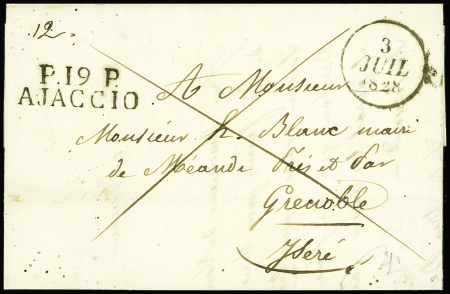 12
P.19 P.
AJACCIO
3
JUIL
1828
A Monsieur
Monsieur h. Blanc maire
de Méaudre Près et Par
Grenoble
Isère